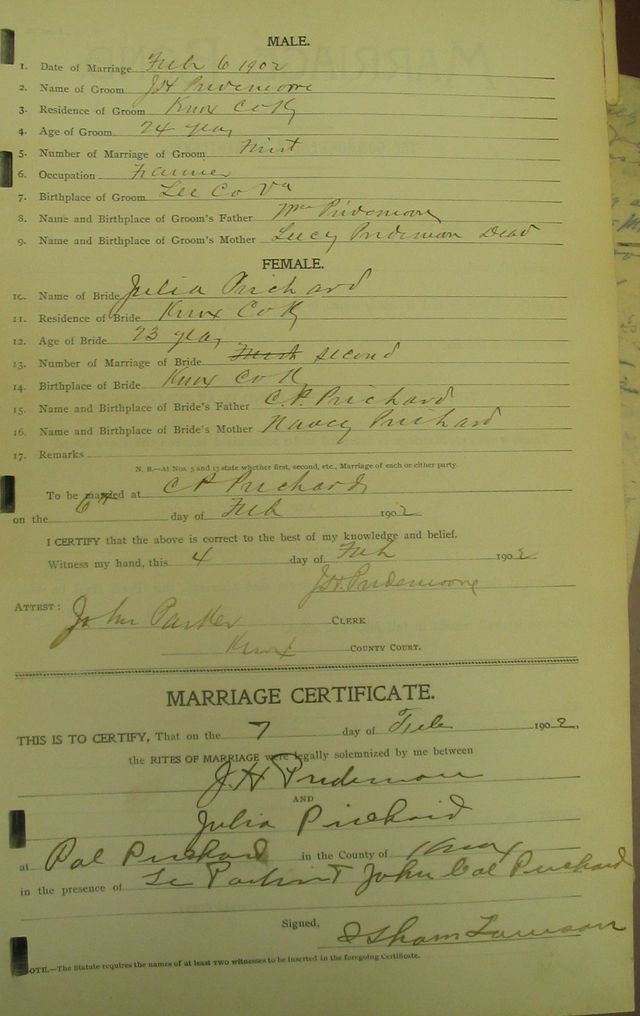 MALE.
1. Date of Marriage Feb 6 1902
2. Name of Groom J.H. Pridemoore
3. Residence of Groom Knox Co Ky
4. Age of Groom 24 years
5. Number of Marriage of Groom First
6. Occupation Farmer
7. Birthplace of Groom Lee Co Va
8. Name and Birthplace of Groom's Father Wm Pridemoore
9. Name and Birthplace of Groom's Mother Lucy Pridemoon Dead
FEMALE.
10. Name of Bride Julia Prichard
11. Residence of Bride Knox Co Ky
12. Age of Bride 23 years
13. Number of Marriage of Bride First second
14. Birthplace of Bride Knox Co Ky
15. Name and Birthplace of Bride's Father C.P. Prichard
16. Name and Birthplace of Bride's Mother Nancy Prichard
17. Remarks
N. B.—At Nos. 5 and 13 state whether first, second, etc., Marriage of each or either party.
To be married at C P Prichards
on the 6th day of Feb 1902
I CERTIFY that the above is correct to the best of my knowledge and belief.
Witness my hand, this 4 day of Feb 1902
J.H. Pridemoore
ATTEST: John Parker CLERK
Knox COUNTY COURT.
MARRIAGE CERTIFICATE.
THIS IS TO CERTIFY, That on the 7 day of Feb 1902,
the RITES OF MARRIAGE were legally solemnized by me between
J. H Pridemore
AND
Julia Prichard
at Pal Prichard in the County of Knox
in the presence of John Cal Prichard
Signed, Isham Lawson
NOTE.—The Statute requires the names of at least TWO witnesses to be inserted in the foregoing Certificate.